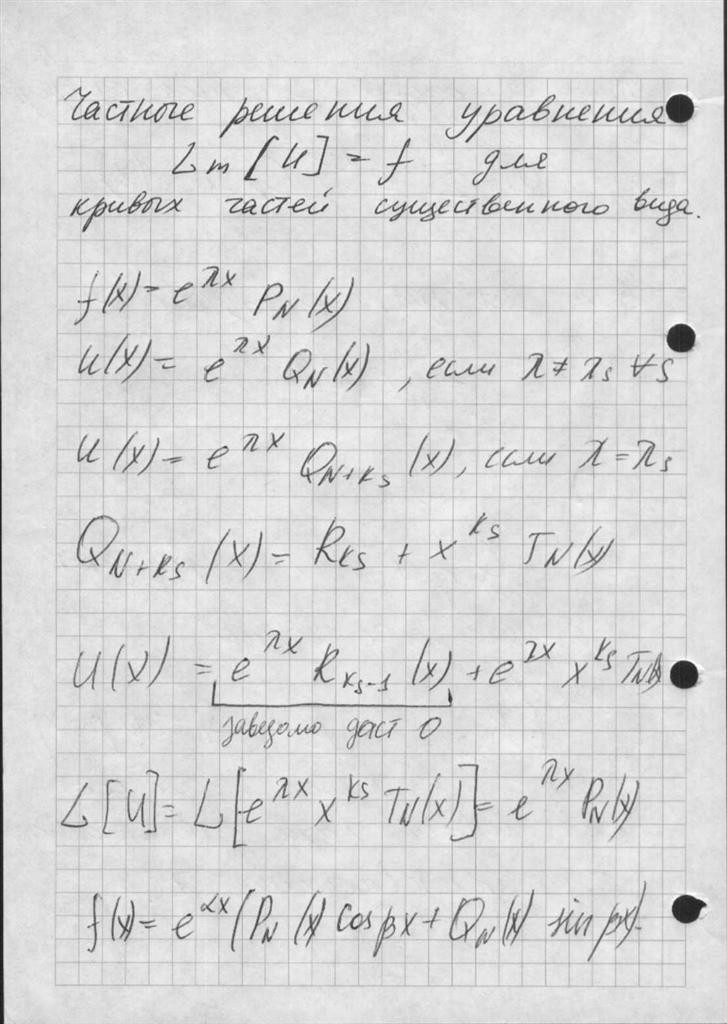 Частные решения уравнения
Lm [U] = f для
кривых частей существенного вида.
f(x) = e^{λx} P_N(x)
U(x) = e^{λx} Q_N(x), если λ ≠ λ_s ∀s
U(x) = e^{λx} Q_{N+k_s}(x), если λ = λ_s
Q_{N+k_s}(x) = R_{k_s} + x^{k_s} T_N(x)
U(x) = e^{λx} R_{k_s-1}(x) + e^{λx} x^{k_s} T_N(x)
заведомо даст 0
L[U] = L[e^{λx} x^{k_s} T_N(x)] = e^{λx} P_N(x)
f(x) = e^{αx}(P_N(x) cos βx + Q_N(x) sin βx) -